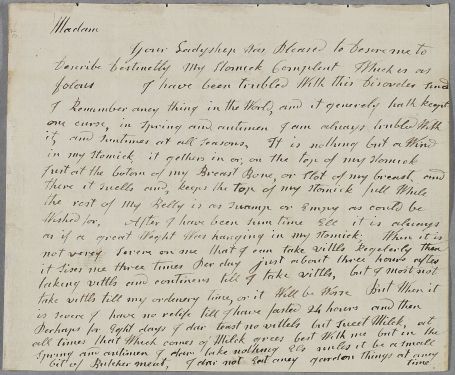 Madam
Your Ladyshep was Pleased to Desire me to
Describe Destinctly My Stomick Complent Which is as
folous I have been trubled With this Disorder sinc
I Remember aney thing in the World, and it generely hath keept
one curse, in Spring and autimen I am always trubled With
it, and sumtimes at all Seasons. It is nothing but a Wind
in my Stomick it gethers in or, on the top of my Stomick
just at the botom of my Breast Bone, or Slot of my breast, and
there it Suells and, keeps the top of my Stomick full While
the rest of My Belly is as and Empey as could be
Wished for. After I have been sum time Ell it is always
as if a great Weght Was hanging in my Stomick. When it is
not verey Severe on me that I can take vittls Regelerly then
it Sises me three times Per day just about three hours after
taking vittls and continws till I take vittls, but I most not
take vittls till my ordenery time, or it Will be Worse But When it
is severe I have no relife till I have fasted 24 hours and then
Perhaps for Eght days I dar teast no vittels but Sueet Milk, at
all times that Which comes of Milk grees best With me but in the
Spring an autimen I dar take nothing Els unles it be a small
bit of Butcher meat, I dar not Eat aney gardon things at aney
time